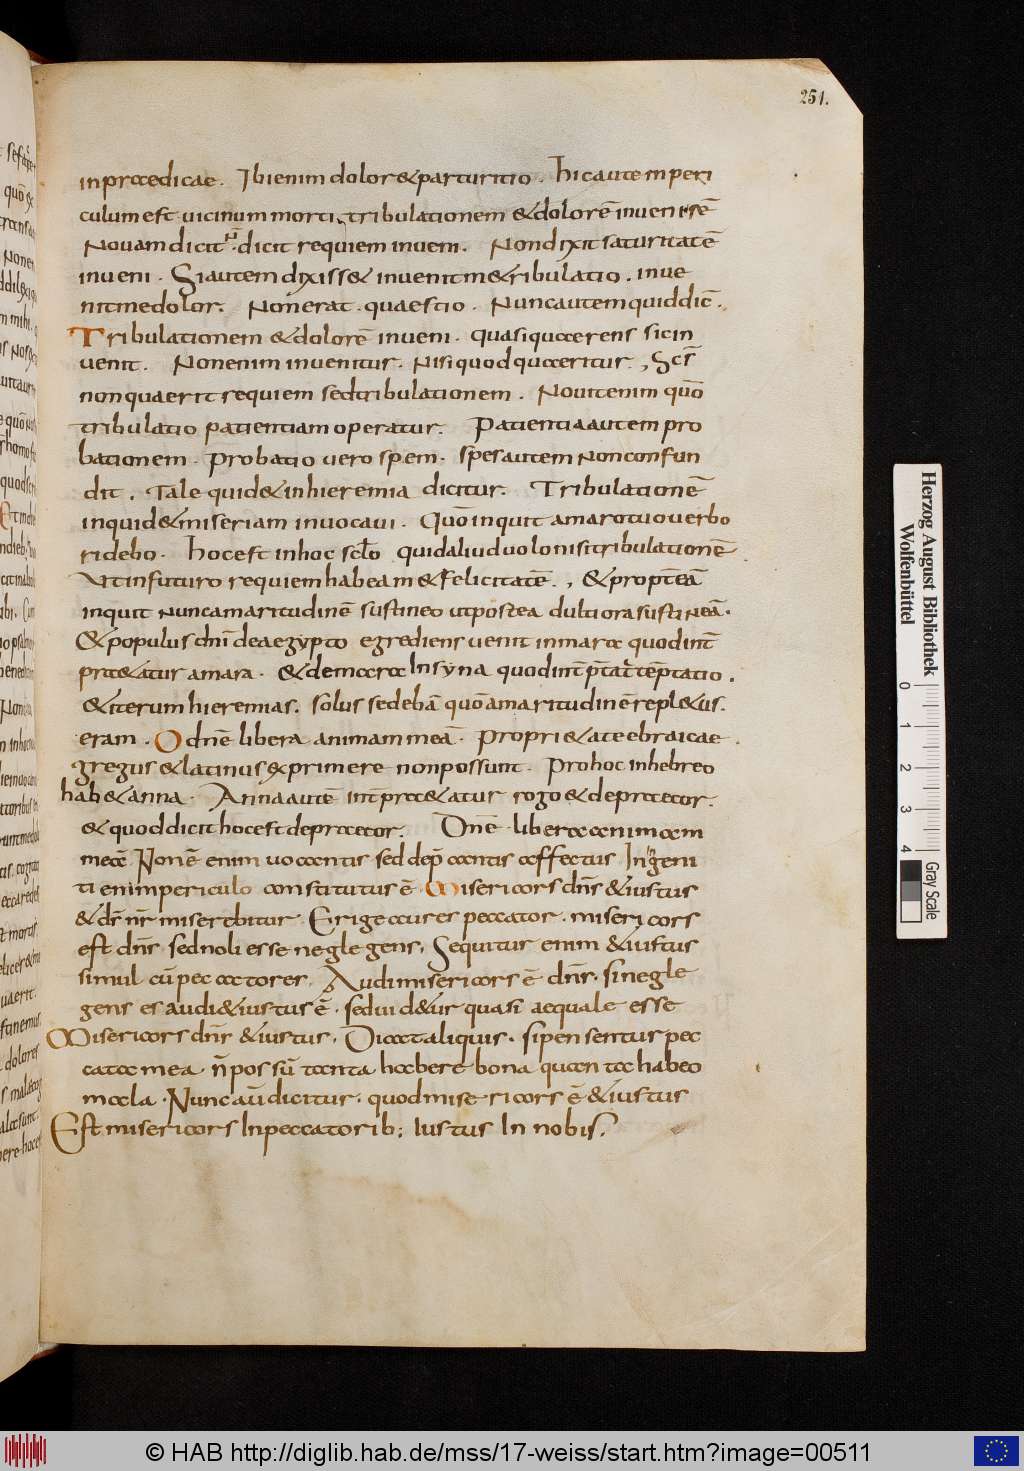 251.
in praedicae. Ibi enim dolor & parturitio. hic autem peri
culum est uicinum morti. tribulationem & dolorē inuenissē
Nouam dicit dicit requiem inueni. Non dixit saturitatē
inueni. Si autem dixiss& inuenit me tribulatio. inue
nit me dolor. Non erat. quaestio. Nunc autem quid dic̄.
Tribulationem & dolorē inueni. quasi quaerens sic in
uenit. Non enim inuenitur. Nisi quod quaeritur. Scs̄
non quaerit requiem sed tribulationem. Nouit enim quō
tribulatio patientiam operatur. Patientia autem pro
bationem. Probatio uero spem. spes autem non confun
dit. Tale quid & in hieremia dicitur. Tribulationē
inquid & miseriam inuocaui. Quō inquit amaro tuo uerbo
ridebo. hoc est in hoc sc̄lo quid aliud uolo nisi tribulationē
Ut in futuro requiem habeam & felicitatē. & propt̄eā
inquit nunc amaritudinē sustineo ut postea dultiora sustineā.
& populus dn̄i de aegypto egrediens uenit in mara quod int̄
praetatur amara. & de mara In syna quod int̄ p̄tat̄ tēptatio.
& iterum hieremias. solus sedebā quō amaritudinē repl&us.
eram. O dn̄e libera animam meā. Propri&ate ebraicae
gregus & latinus exprimere non possunt. Pro hoc in hebreo
hab& anna. Anna autē int̄pr&atur rogo & deprecor.
& quod dicit hoc est deprecor. Dn̄e libera animam
meā Non ē enim uocantis sed dep̄cantis affectus Ingenti
ti enim periculo constitutus ē Misericors dn̄s & iustus
& ds̄ nr̄ miserebitur. Erige aures peccator. misericors
est dn̄s sed noli esse neglegens. Sequitur enim & iustus
simul cū peccatores. Audi misericors ē dn̄s. si negle
gens es audi & iustus ē. sed uid&ur quasi aequale esse
Misericors dn̄s & iustus. Dicat aliquis. si pensentur pec
cata mea. n̄ possū tanta habere bona quanta habeo
mala. Nunc aū dicitur. quod misericors ē & iustus
Est misericors In peccatorib; iustus In nobis.
Herzog August Bibliothek
Wolfenbüttel
0 1 2 3 4
Gray Scale
© HAB http://diglib.hab.de/mss/17-weiss/start.htm?image=00511